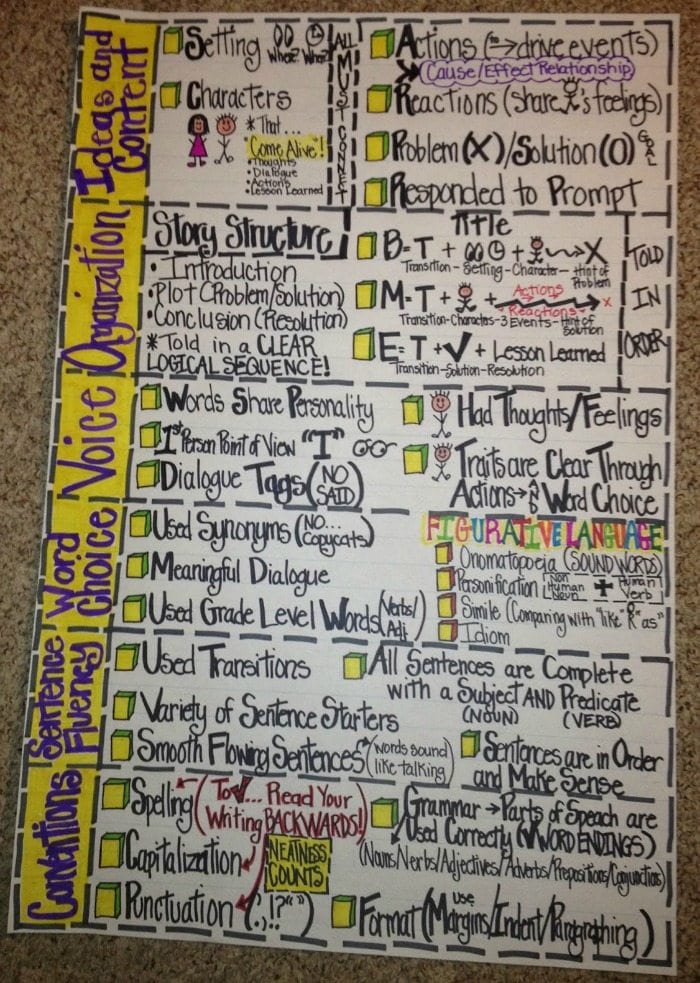 Ideas and Content
Setting Where? When?
Characters
* That...
"Come Alive"!
• Thoughts
• Dialogue
• Actions
• Lesson Learned
ALL MUST CONNECT
Actions (→drive events)
Cause/Effect Relationship
Reactions (share 's feelings)
Problem (X)/Solution (O) GOAL
Responded to Prompt
Organization
Story Structure
• Introduction
• Plot (Problem/Solution)
• Conclusion (Resolution)
* Told in a CLEAR
LOGICAL SEQUENCE!
Title
B=T + + X
Transition - Setting - Character - Hint of Problem
M-T + + Actions X
Reactions
Transition-Characters-3 Events-Hint of Solution
E=T + ✓ + Lesson Learned
Transition-Solution-Resolution
TOLD
IN
ORDER
Voice
Words Share Personality
1st Person Point of View "I"
Dialogue Tags (NO SAID)
Had Thoughts/Feelings
Traits are Clear Through
Actions → Word Choice
Word Choice
Used Synonyms (NO... Copycats)
Meaningful Dialogue
Used Grade Level Words (Verbs/Adj.
FIGURATIVE LANGUAGE
Onomatopoeia (SOUND WORDS)
Personification Non Human Noun + Human Verb
Simile (Comparing with "like" "R" as"
Idiom
Sentence Fluency
Used Transitions
Variety of Sentence Starters
Smooth Flowing Sentences (words sound like talking)
All Sentences are Complete
with a Subject AND Predicate
(NOUN) (VERB)
Sentences are in Order
and Make Sense
Conventions
Spelling (To ✓... Read Your
Writing BACKWARDS!)
Capitalization
NEATNESS
COUNTS
Punctuation (.,!?"")
Grammar → Parts of Speach are
Used Correctly (✓WORD ENDINGS)
(Nouns/Verbs/Adjectives/Adverbs/Prepositions/Conjunctions)
Format (use Margins/Indent/Paragraphing)